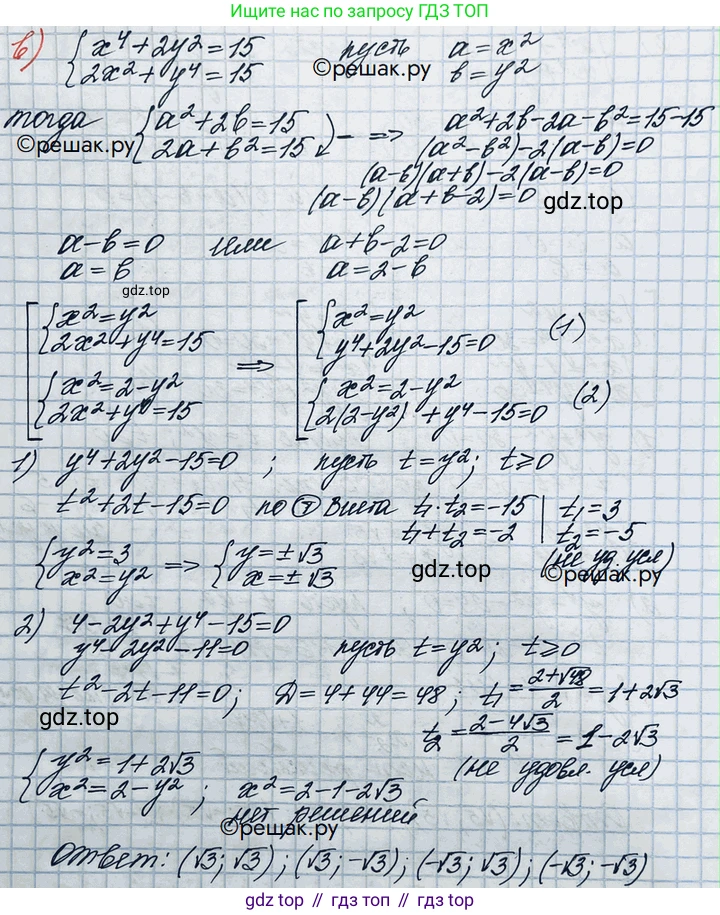 Ищите нас по запросу ГДЗ ТОП
в) { x⁴ + 2y² = 15 пусть a = x²
2x² + y⁴ = 15 ©reшак.ру b = y²
тогда { a² + 2b = 15 - => a² + 2b - 2a - b² = 15 - 15
©reшак.ру 2a + b² = 15 (a² - b²) - 2(a - b) = 0
(a - b)(a + b) - 2(a - b) = 0
(a - b)(a + b - 2) = 0 gdz.top
a - b = 0 или a + b - 2 = 0
a = b a = 2 - b
gdz.top
[ { x² = y² => [ { x² = y² (1)
2x² + y⁴ = 15 y⁴ + 2y² - 15 = 0
{ x² = 2 - y² { x² = 2 - y² (2)
2x² + y⁴ = 15 2(2 - y²) + y⁴ - 15 = 0
1) y⁴ + 2y² - 15 = 0 ; пусть t = y²; t ≥ 0
t² + 2t - 15 = 0 по Т Виета t₁ · t₂ = -15 | t₁ = 3
t₁ + t₂ = -2 | t₂ = -5
(не уд. усл)
{ y² = 3 => { y = ±√3
x² = y² x = ±√3 gdz.top ©reшак.ру
2) 4 - 2y² + y⁴ - 15 = 0
y⁴ - 2y² - 11 = 0 пусть t = y²; t ≥ 0
t² - 2t - 11 = 0; D = 4 + 44 = 48; t₁ = (2 + √48)/2 = 1 + 2√3
gdz.top t₂ = (2 - 4√3)/2 = 1 - 2√3
(не удовл. усл)
{ y² = 1 + 2√3
x² = 2 - y² ; x² = 2 - 1 - 2√3
нет решений
©reшак.ру
Ответ: (√3; √3); (√3; -√3); (-√3; √3); (-√3; -√3)
gdz.top // гдз.топ // гдз.top